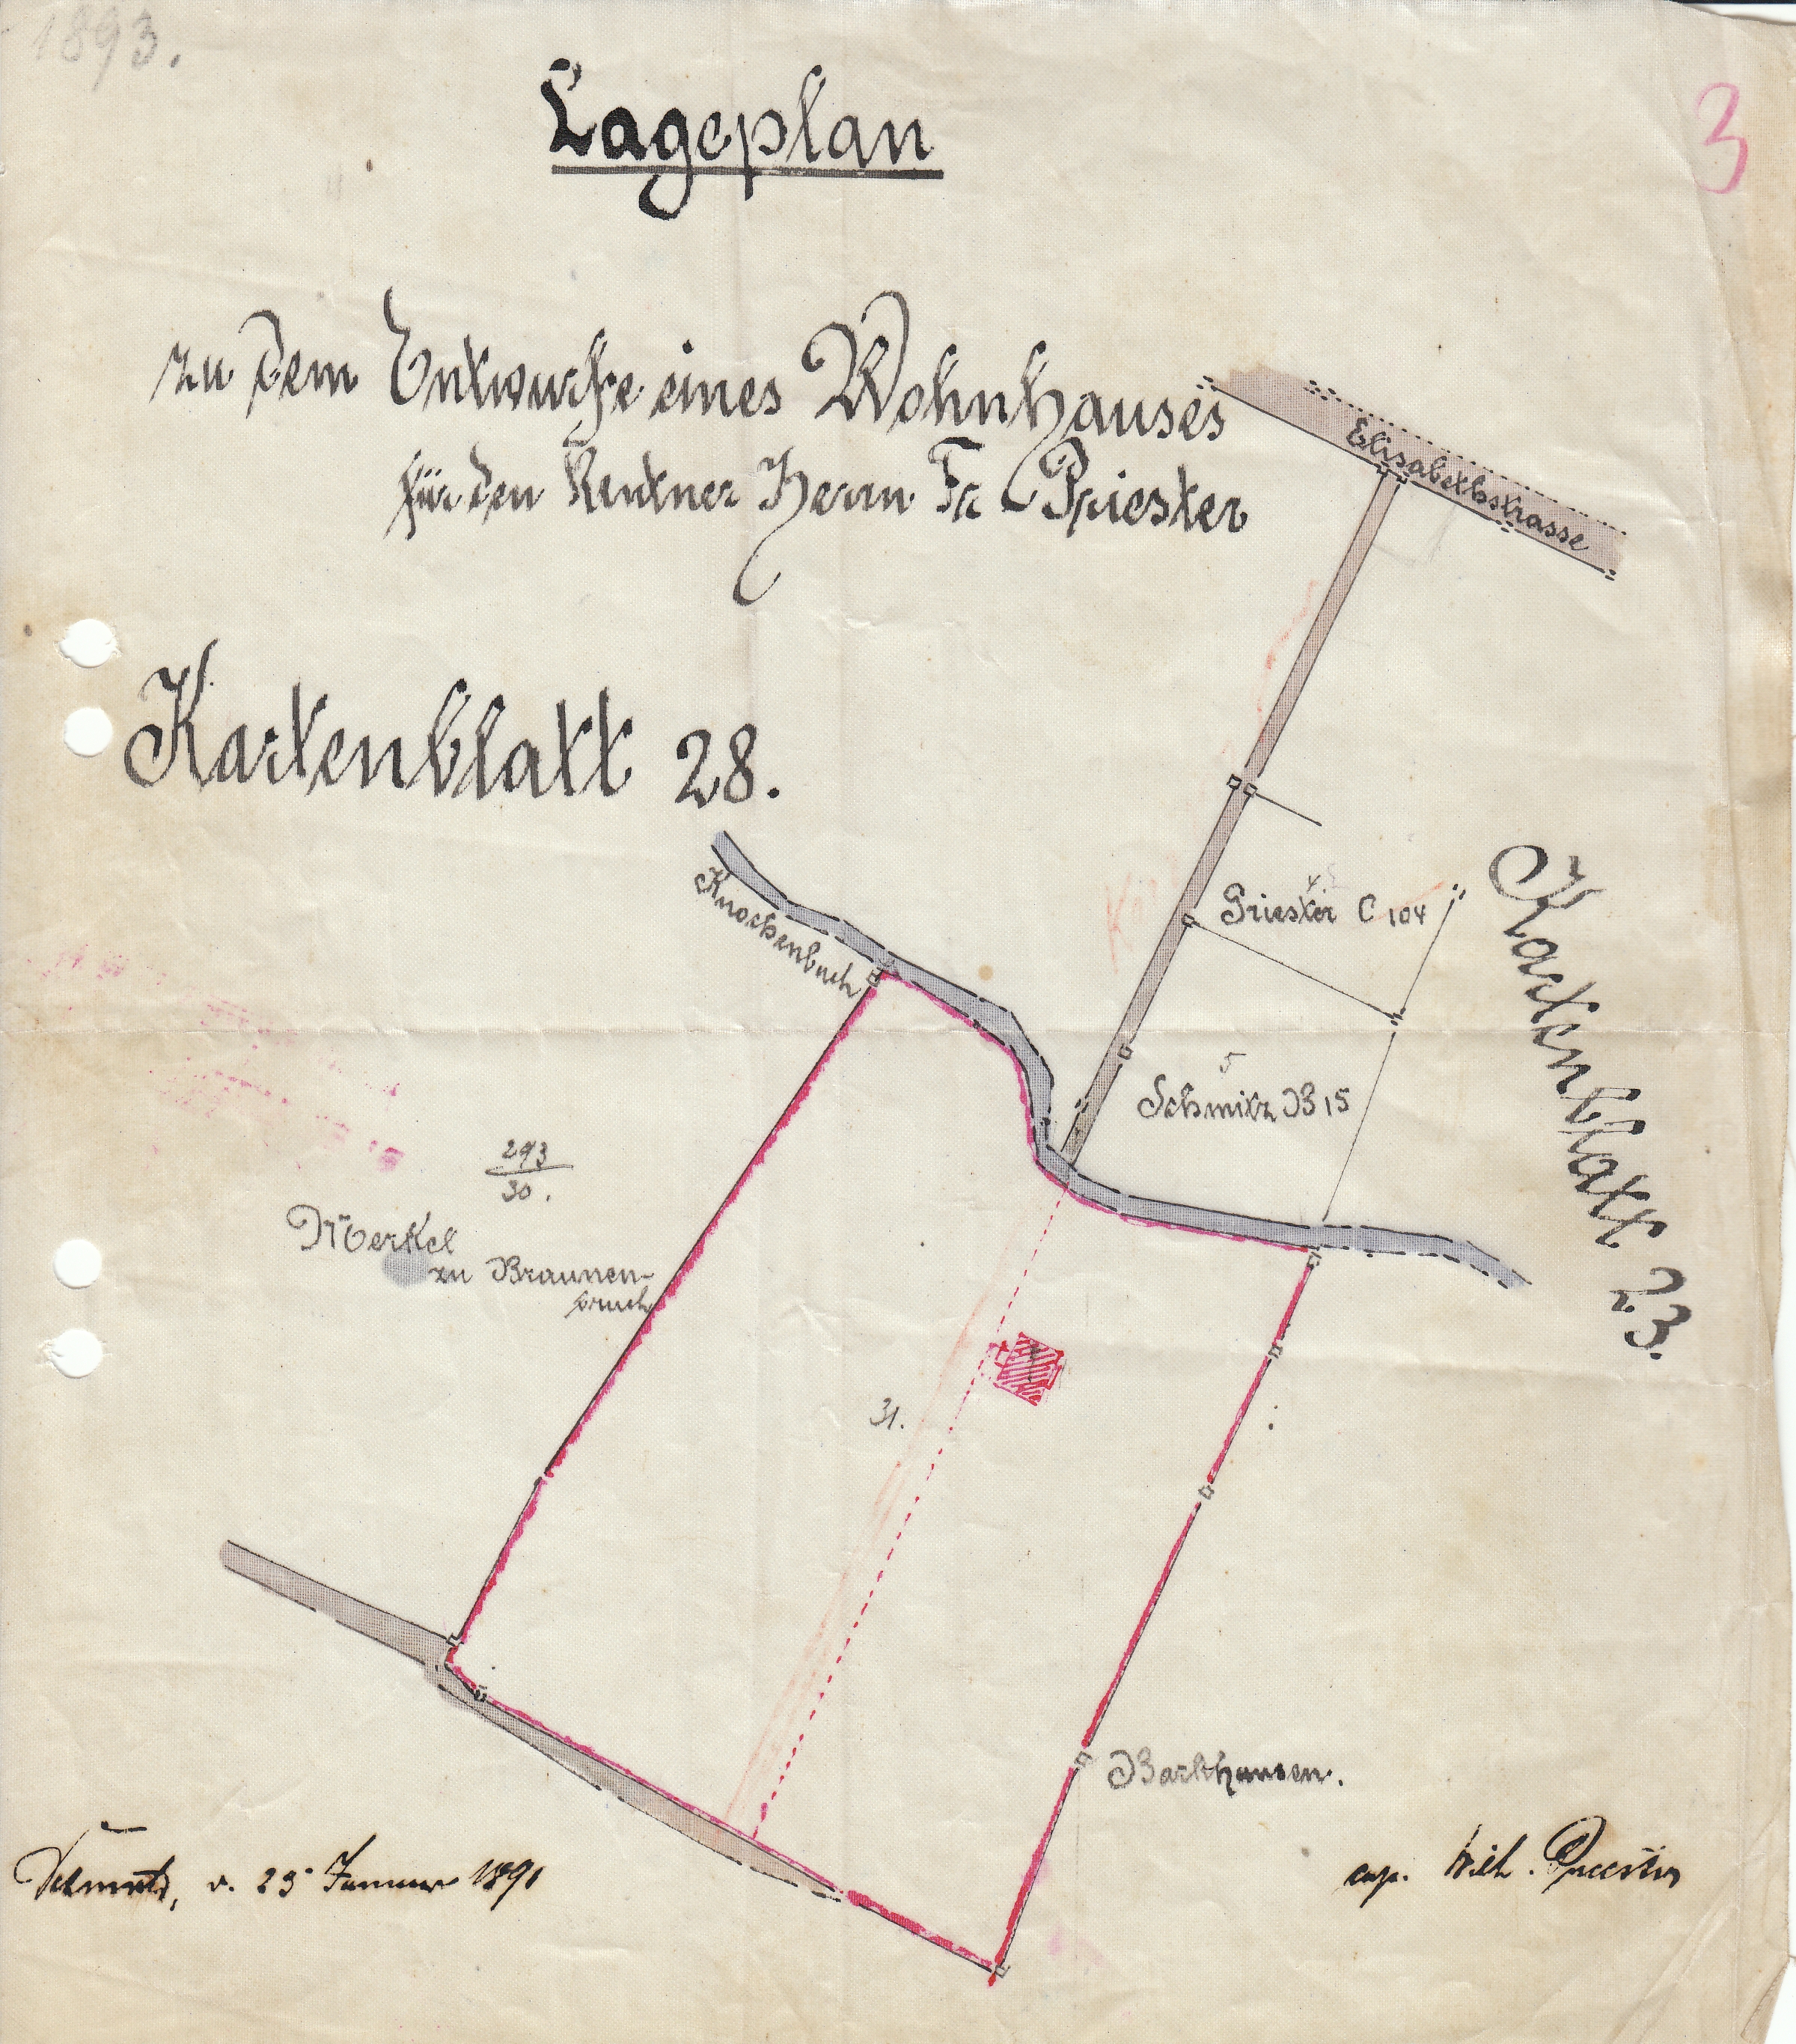 1893.
3
Lageplan
zu dem Entwurfe eines Wohnhauses
für den Rentner Herrn Fr Priester
Elisabethstrasse
Kartenblatt 28.
Knochenbach
4
Priester C 104
5
Schmitz B 15
Kartenblatt 23.
293
30.
Merkel
zu Braunen-
bruch
31.
Barkhausen.
Detmold, d. 25 Januar 1891
Wilh. Priester